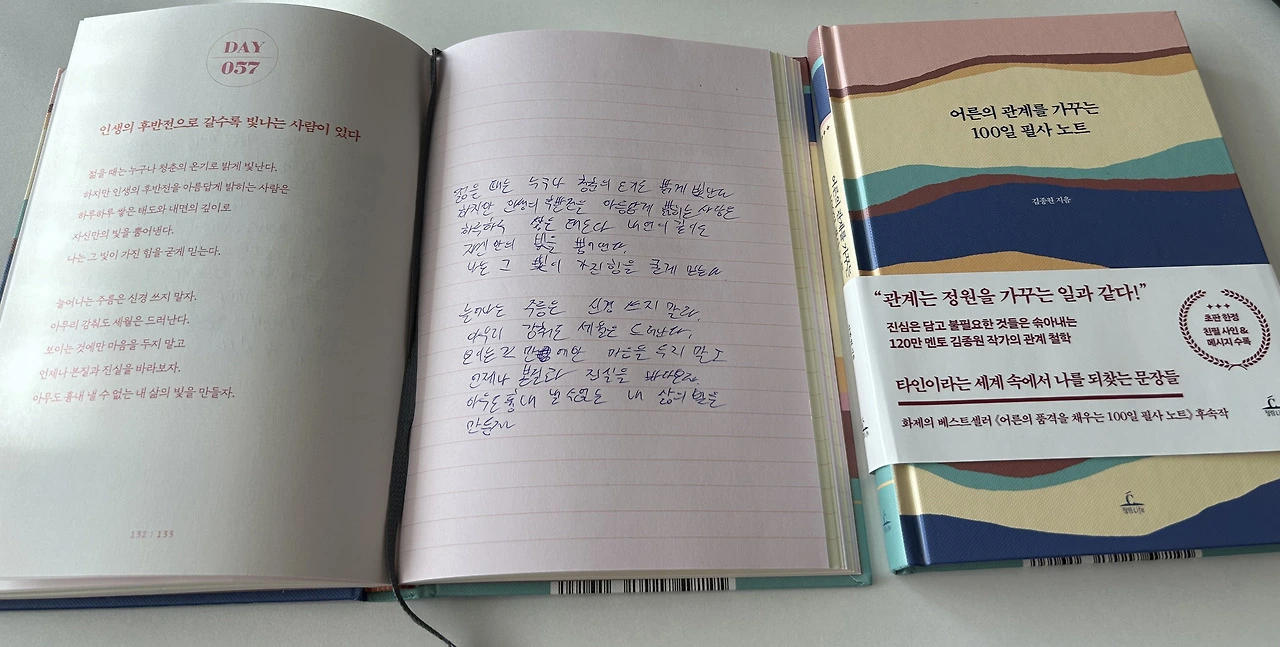 DAY
057
인생의 후반전으로 갈수록 빛나는 사람이 있다
젊을 때는 누구나 청춘의 온기로 밝게 빛난다.
하지만 인생의 후반전을 아름답게 밝히는 사람은
하루하루 쌓은 태도와 내면의 깊이로
자신만의 빛을 뿜어낸다.
나는 그 빛이 가진 힘을 굳게 믿는다.
늘어나는 주름은 신경 쓰지 말자.
아무리 감춰도 세월은 드러난다.
보이는 것에만 마음을 두지 말고
언제나 본질과 진실을 바라보자.
아무도 흉내 낼 수 없는 내 삶의 빛을 만들자.
132 / 133
젊을 때는 누구나 청춘의 온기로 밝게 빛난다
하지만 인생의 후반전을 아름답게 밝히는 사람은
하루하루 쌓은 태도와 내면의 깊이로
자신만의 빛을 뿜어낸다
나는 그 빛이 가진 힘을 굳게 믿는다.
늘어나는 주름은 신경 쓰지 말자.
아무리 감춰도 세월은 드러난다.
보이는 것에만 마음을 두지 말고
언제나 본질과 진실을 바라보자
아무도 흉내 낼 수 없는 내 삶의 빛을
만들자
어른의 관계를 가꾸는
100일 필사 노트
김종원 지음
“관계는 정원을 가꾸는 일과 같다!”
진심은 담고 불필요한 것들은 솎아내는
120만 멘토 김종원 작가의 관계 철학
타인이라는 세계 속에서 나를 되찾는 문장들
화제의 베스트셀러 《어른의 품격을 채우는 100일 필사 노트》 후속작
초판 한정
친필 사인 &
메시지 수록
어른의 관계를 가꾸는